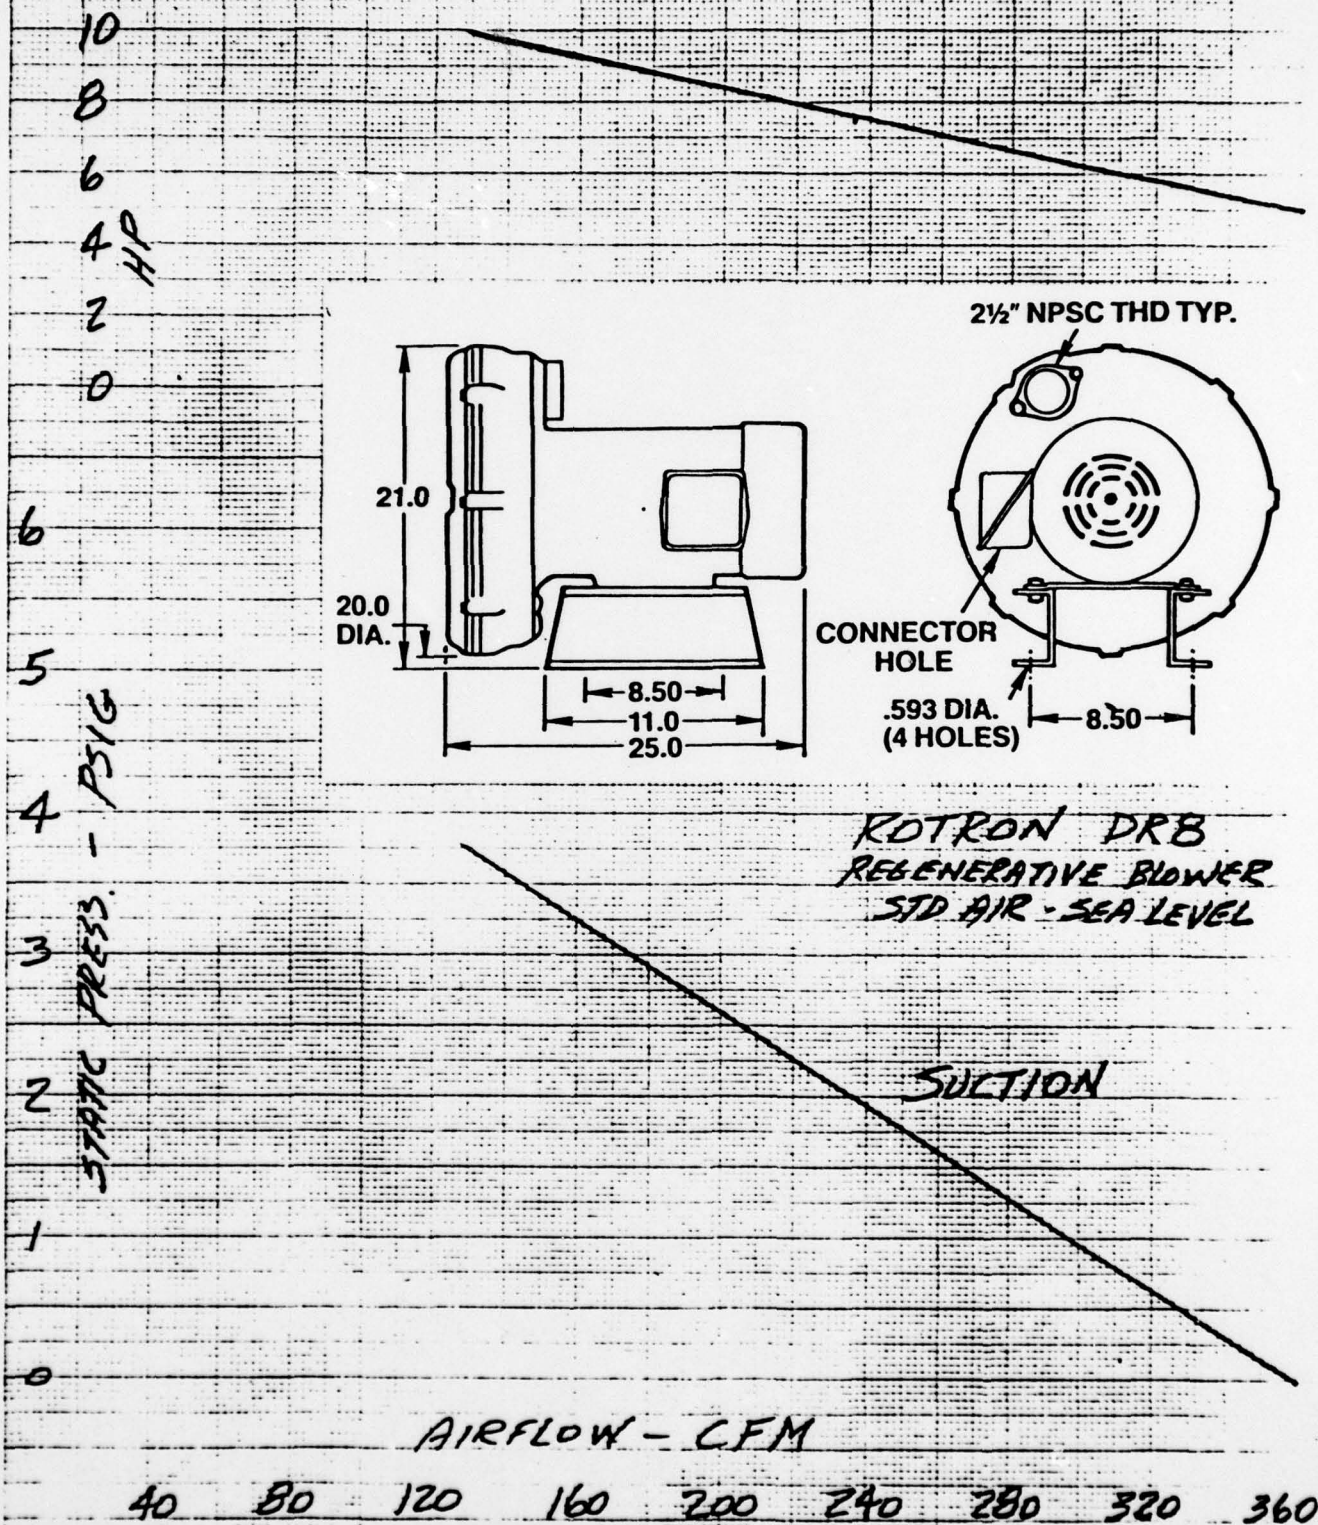 10
8
6
4
2
0
HP
2½" NPSC THD TYP.
21.0
20.0
DIA.
8.50
11.0
25.0
CONNECTOR
HOLE
.593 DIA.
(4 HOLES)
8.50
6
5
4
3
2
1
0
STATIC PRESS. - PSIG
ROTRON DR8
REGENERATIVE BLOWER
STD AIR - SEA LEVEL
SUCTION
AIRFLOW - CFM
40 80 120 160 200 240 280 320 360